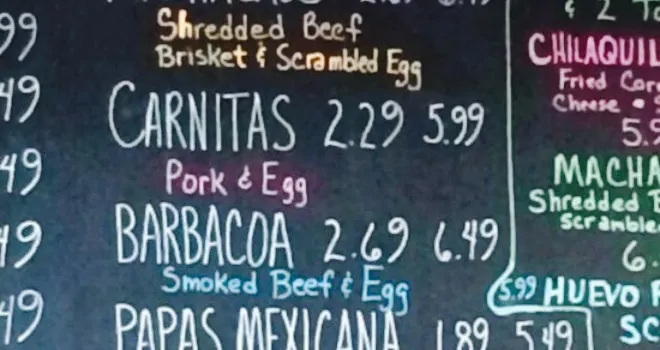 Shredded Beef
Brisket & Scrambled Egg
CARNITAS 2.29 5.99
Pork & Egg
BARBACOA 2.69 6.49
Smoked Beef & Egg
PAPAS MEXICANA 1.89 5.49
99
49
49
49
49
& 2
CHILAQUIL
Fried Cor
Cheese •
5.9
MACHA
Shredded B
Scramble
6.
5.99 HUEVO
SC